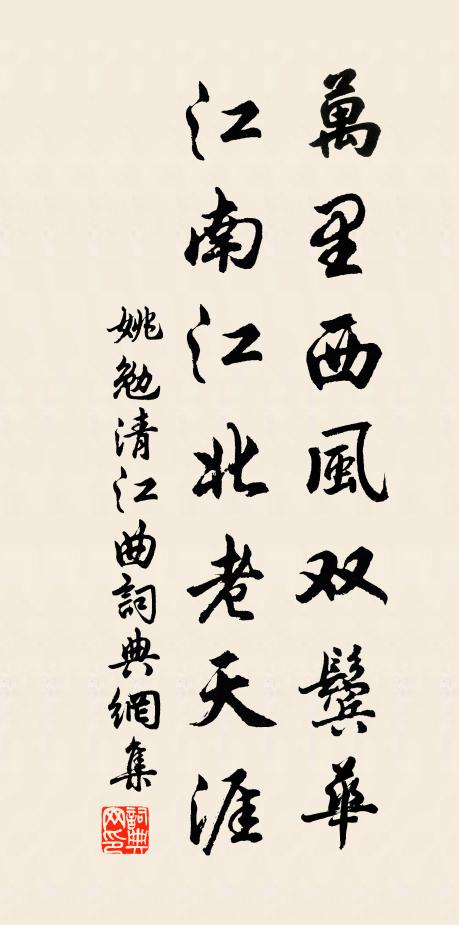 萬里西風双鬢華
江南江北老天涯
姚勉清江曲詞典網集
詞典网印